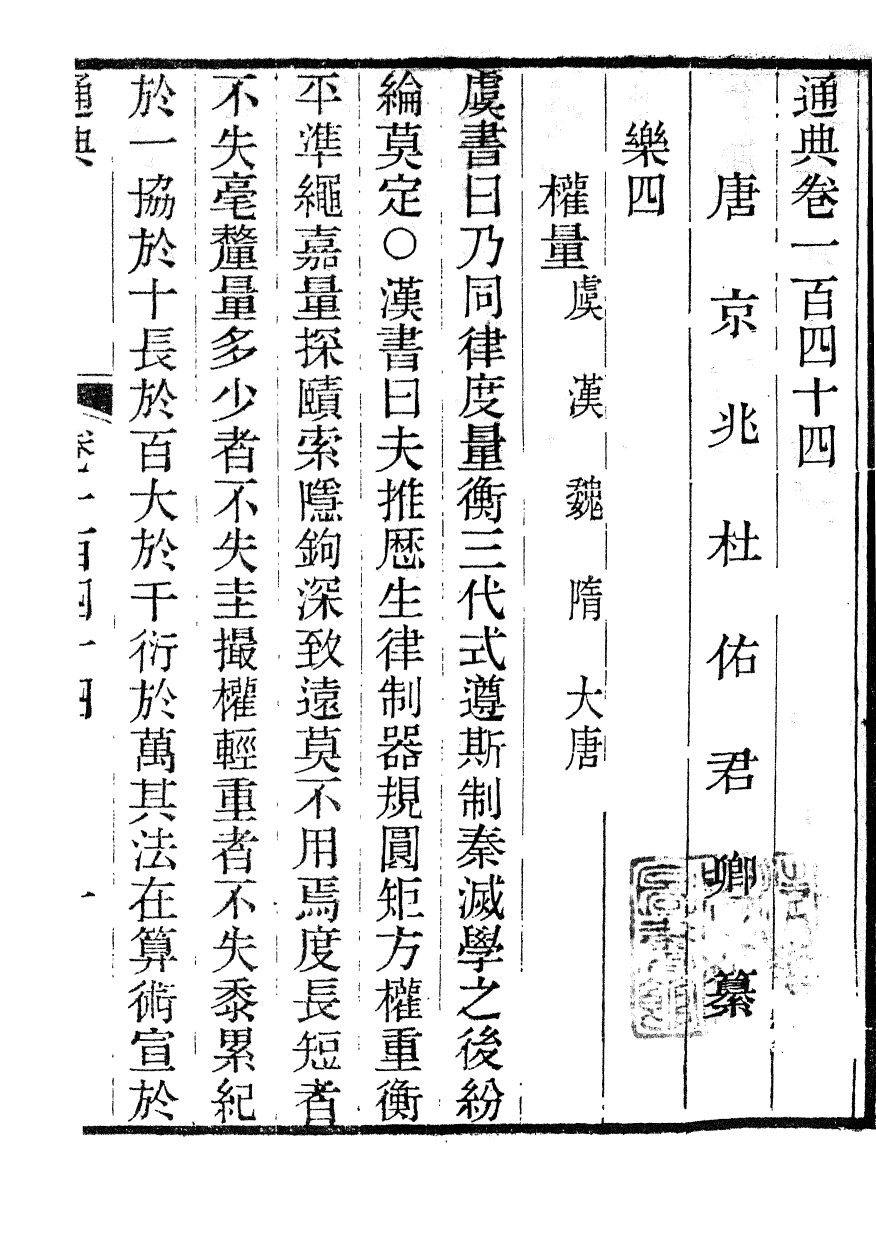 通典卷一百四十四
唐京兆杜佑君卿纂
樂四
權量虞漢魏隋大唐
虞書曰乃同律度量衡三代式遵斯制秦滅學之後紛
綸莫定○漢書曰夫推厯生律制器規圓矩方權重衡
平準繩嘉量探賾索隱鉤深致遠莫不用焉度長短者
不失毫釐量多少者不失圭撮權輕重者不失黍累紀
於一協於十長於百大於千衍於萬其法在算術宣於
通典 卷一百四十四 一